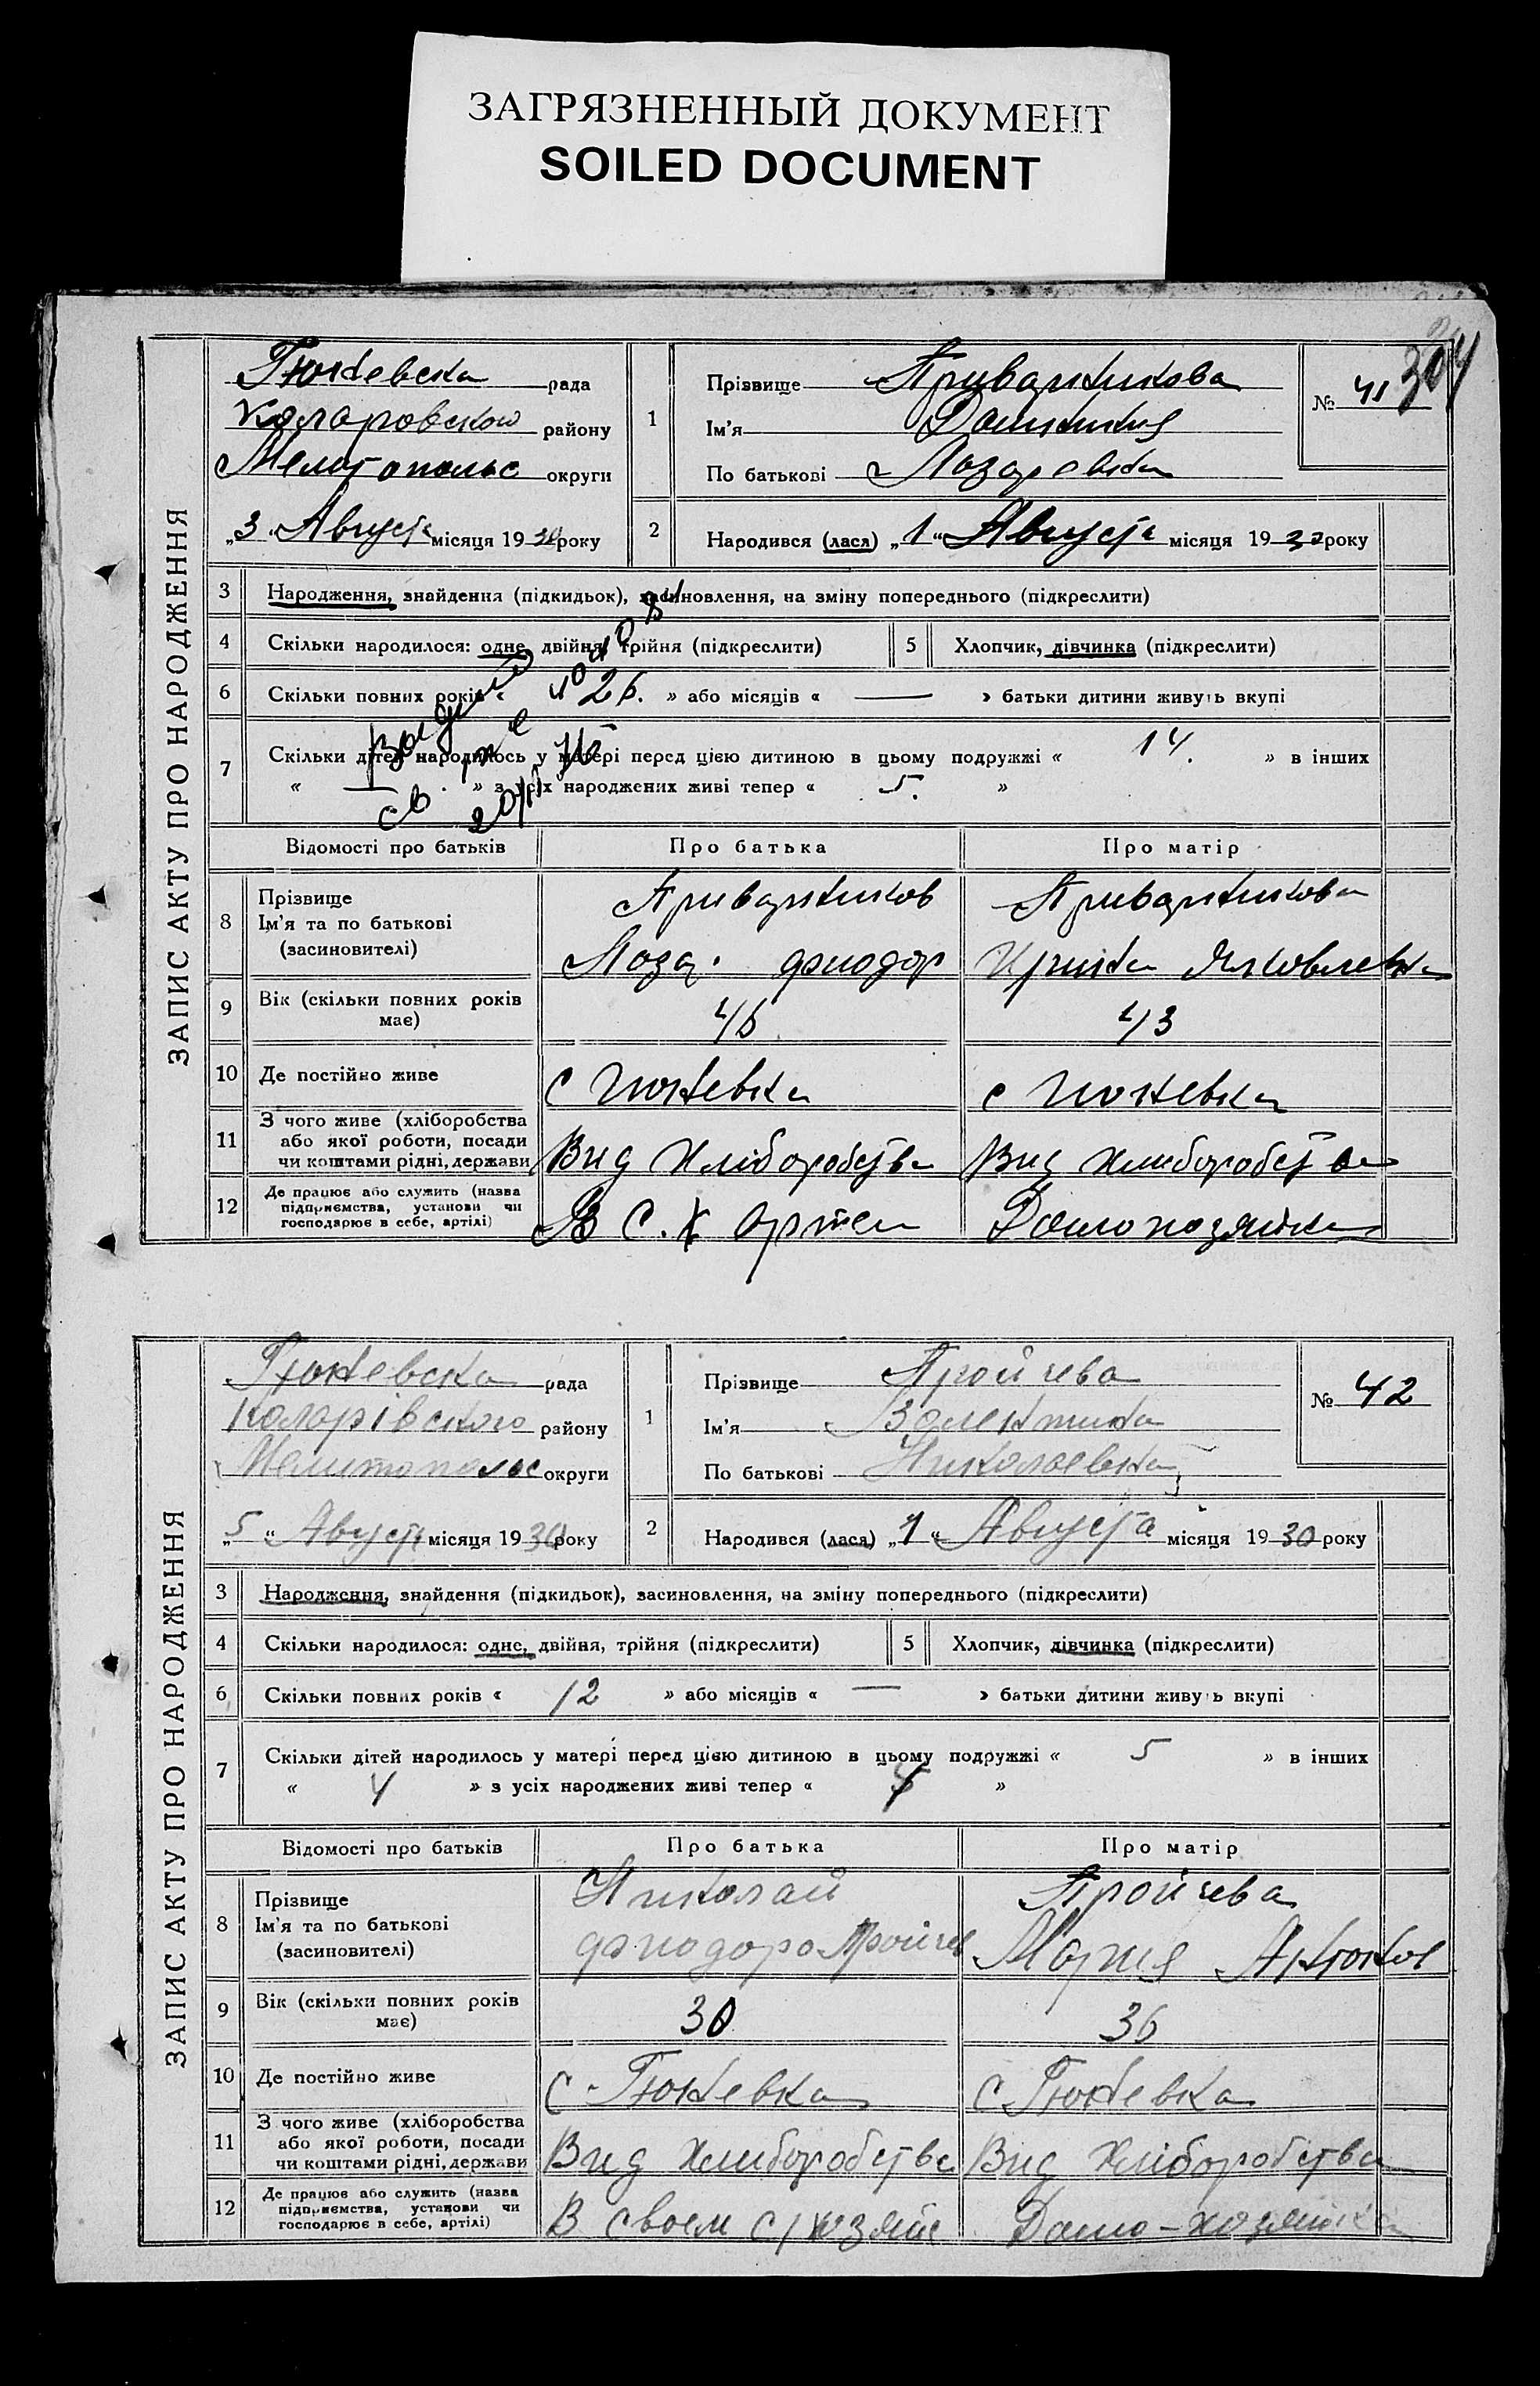 ЗАГРЯЗНЕННЫЙ ДОКУМЕНТ
SOILED DOCUMENT
304
ЗАПИС АКТУ ПРО НАРОДЖЕННЯ
Гюневска рада
Коларовском району
Мелітопольс округи
„3“ Августа місяця 1930 року
1
Прізвище Приварникова
Ім’я
По батькові Лазаревна
№ 41
2
Народився (лася) „1“ Августа місяця 1930 року
3 Народження, знайдення (підкидьок), засиновлення, на зміну попереднього (підкреслити)
4 Скільки народилося: одне, двійня, трійня (підкреслити)
5 Хлопчик, дівчинка (підкреслити)
6 Скільки повних років « 26. » або місяців « — » батьки дитини живуть вкупі
7 Скільки дітей народилось у матері перед цією дитиною в цьому подружжі « 14. » в інших
« — » з усіх народжених живі тепер « 5. »
Відомості про батьків Про батька Про матір
8
Прізвище
Ім’я та по батькові
(засиновителі)
Приварников
Лаза. фиодор
Приварникова
Ирина Яковлевна
9 Вік (скільки повних років має) 46 43
10 Де постійно живе с Гюневка с Гюневка
11 З чого живе (хліборобства
або якої роботи, посади
чи коштами рідні, держави
Вид Хліборобства Вид Хлиборобства
12 Де працює або служить (назва
підприємства, установи чи
господарює в себе, артілі)
В С.Х Артел Домохозяйка
ЗАПИС АКТУ ПРО НАРОДЖЕННЯ
Гюневска рада
Коларівского району
Мелитопольс округи
„5“ Августа місяця 1930 року
1
Прізвище Пройчева
Ім’я Валентина
По батькові Николаевна
№ 42
2
Народився (лася) „1“ Августа місяця 1930 року
3 Народження, знайдення (підкидьок), засиновлення, на зміну попереднього (підкреслити)
4 Скільки народилося: одне, двійня, трійня (підкреслити)
5 Хлопчик, дівчинка (підкреслити)
6 Скільки повних років « 12 » або місяців « — » батьки дитини живуть вкупі
7 Скільки дітей народилось у матері перед цією дитиною в цьому подружжі « 5 » в інших
« 4 » з усіх народжених живі тепер « »
Відомості про батьків Про батька Про матір
8
Прізвище
Ім’я та по батькові
(засиновителі)
Николай
фиодоро Пройчев
Пройчева
Мария
9 Вік (скільки повних років має) 30 36
10 Де постійно живе с Гюневка с Гюневка
11 З чого живе (хліборобства
або якої роботи, посади
чи коштами рідні, держави
Вид Хлиборобства Вид Хліборобства
12 Де працює або служить (назва
підприємства, установи чи
господарює в себе, артілі)
В своем с/хозяйс Домо-хозяйка